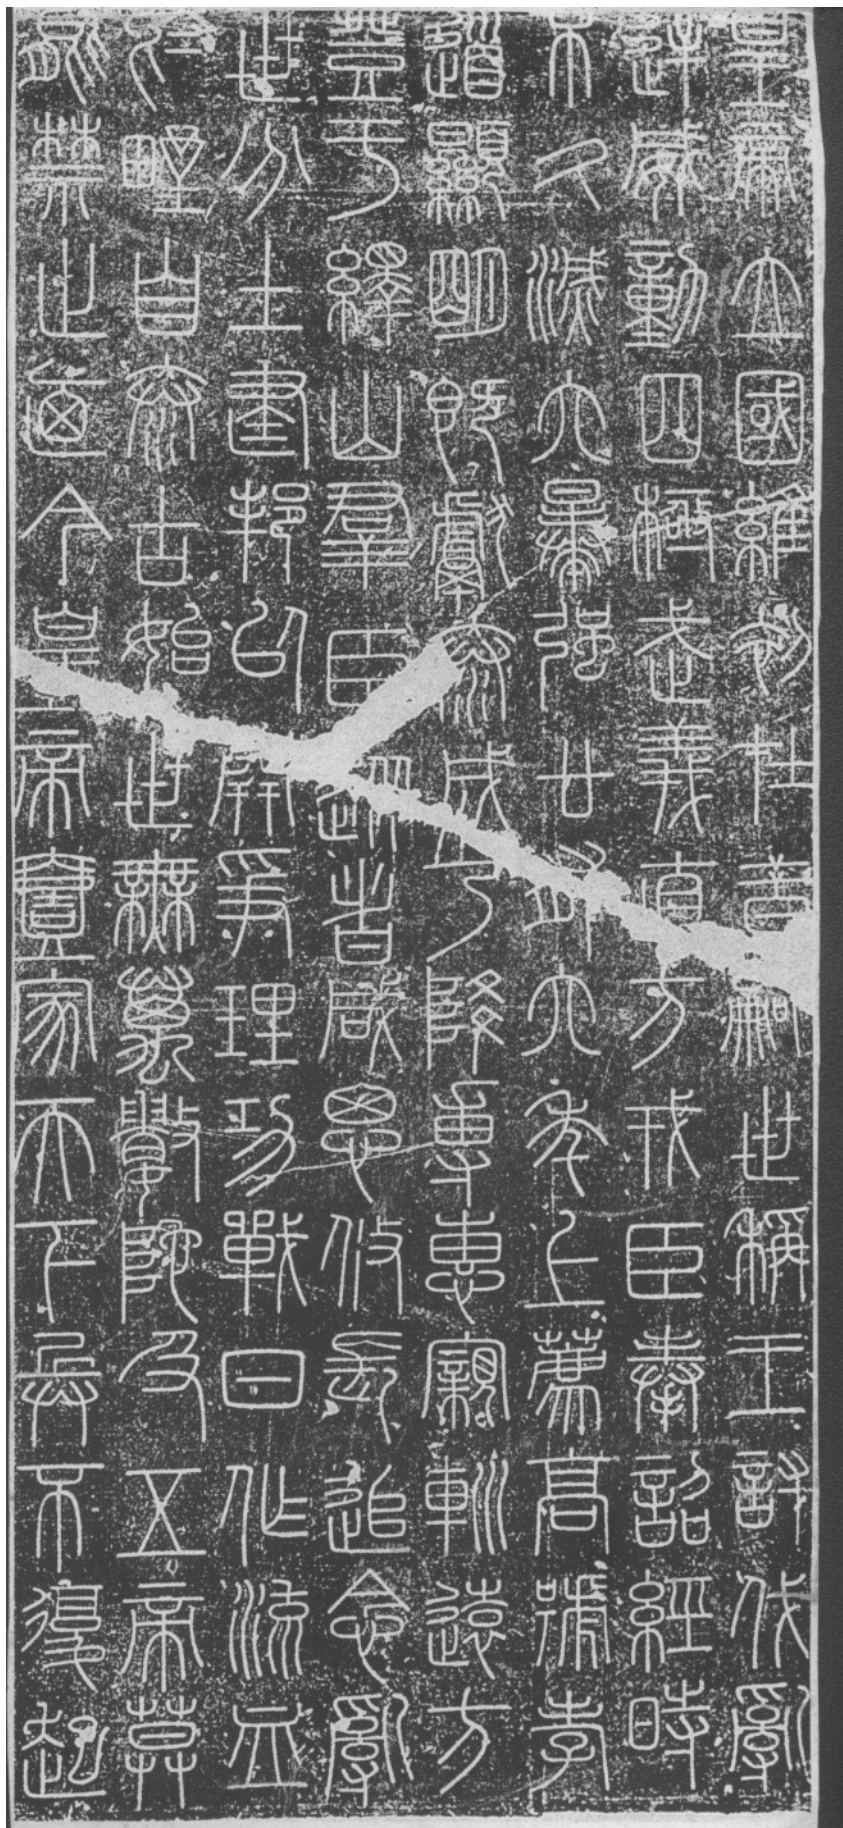 皇帝立國維初在昔嗣世稱王討伐亂
逆威動四極武義直方戎臣奉詔經時
不久滅六暴強廿有六年上薦高號孝
道顯明既獻泰成乃降專惠寴巡遠方
登于繹山群臣從者咸思攸長追念亂
世分土建邦以開爭理功戰日作流血
於野自泰古始世無萬數陀及五帝莫
能禁止廼今皇帝壹家天下兵不復起